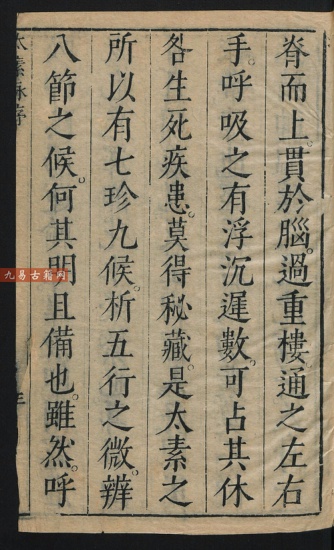 脊而上。貫於腦。過重樓。通之左右
手。呼吸之有浮沉遲數。可占其休
咎生死疾患。莫得秘藏。是太素之
所以有七珍九候。析五行之微。辨
八節之候。何其明且備也。雖然。呼
太素脉序
九易古籍网